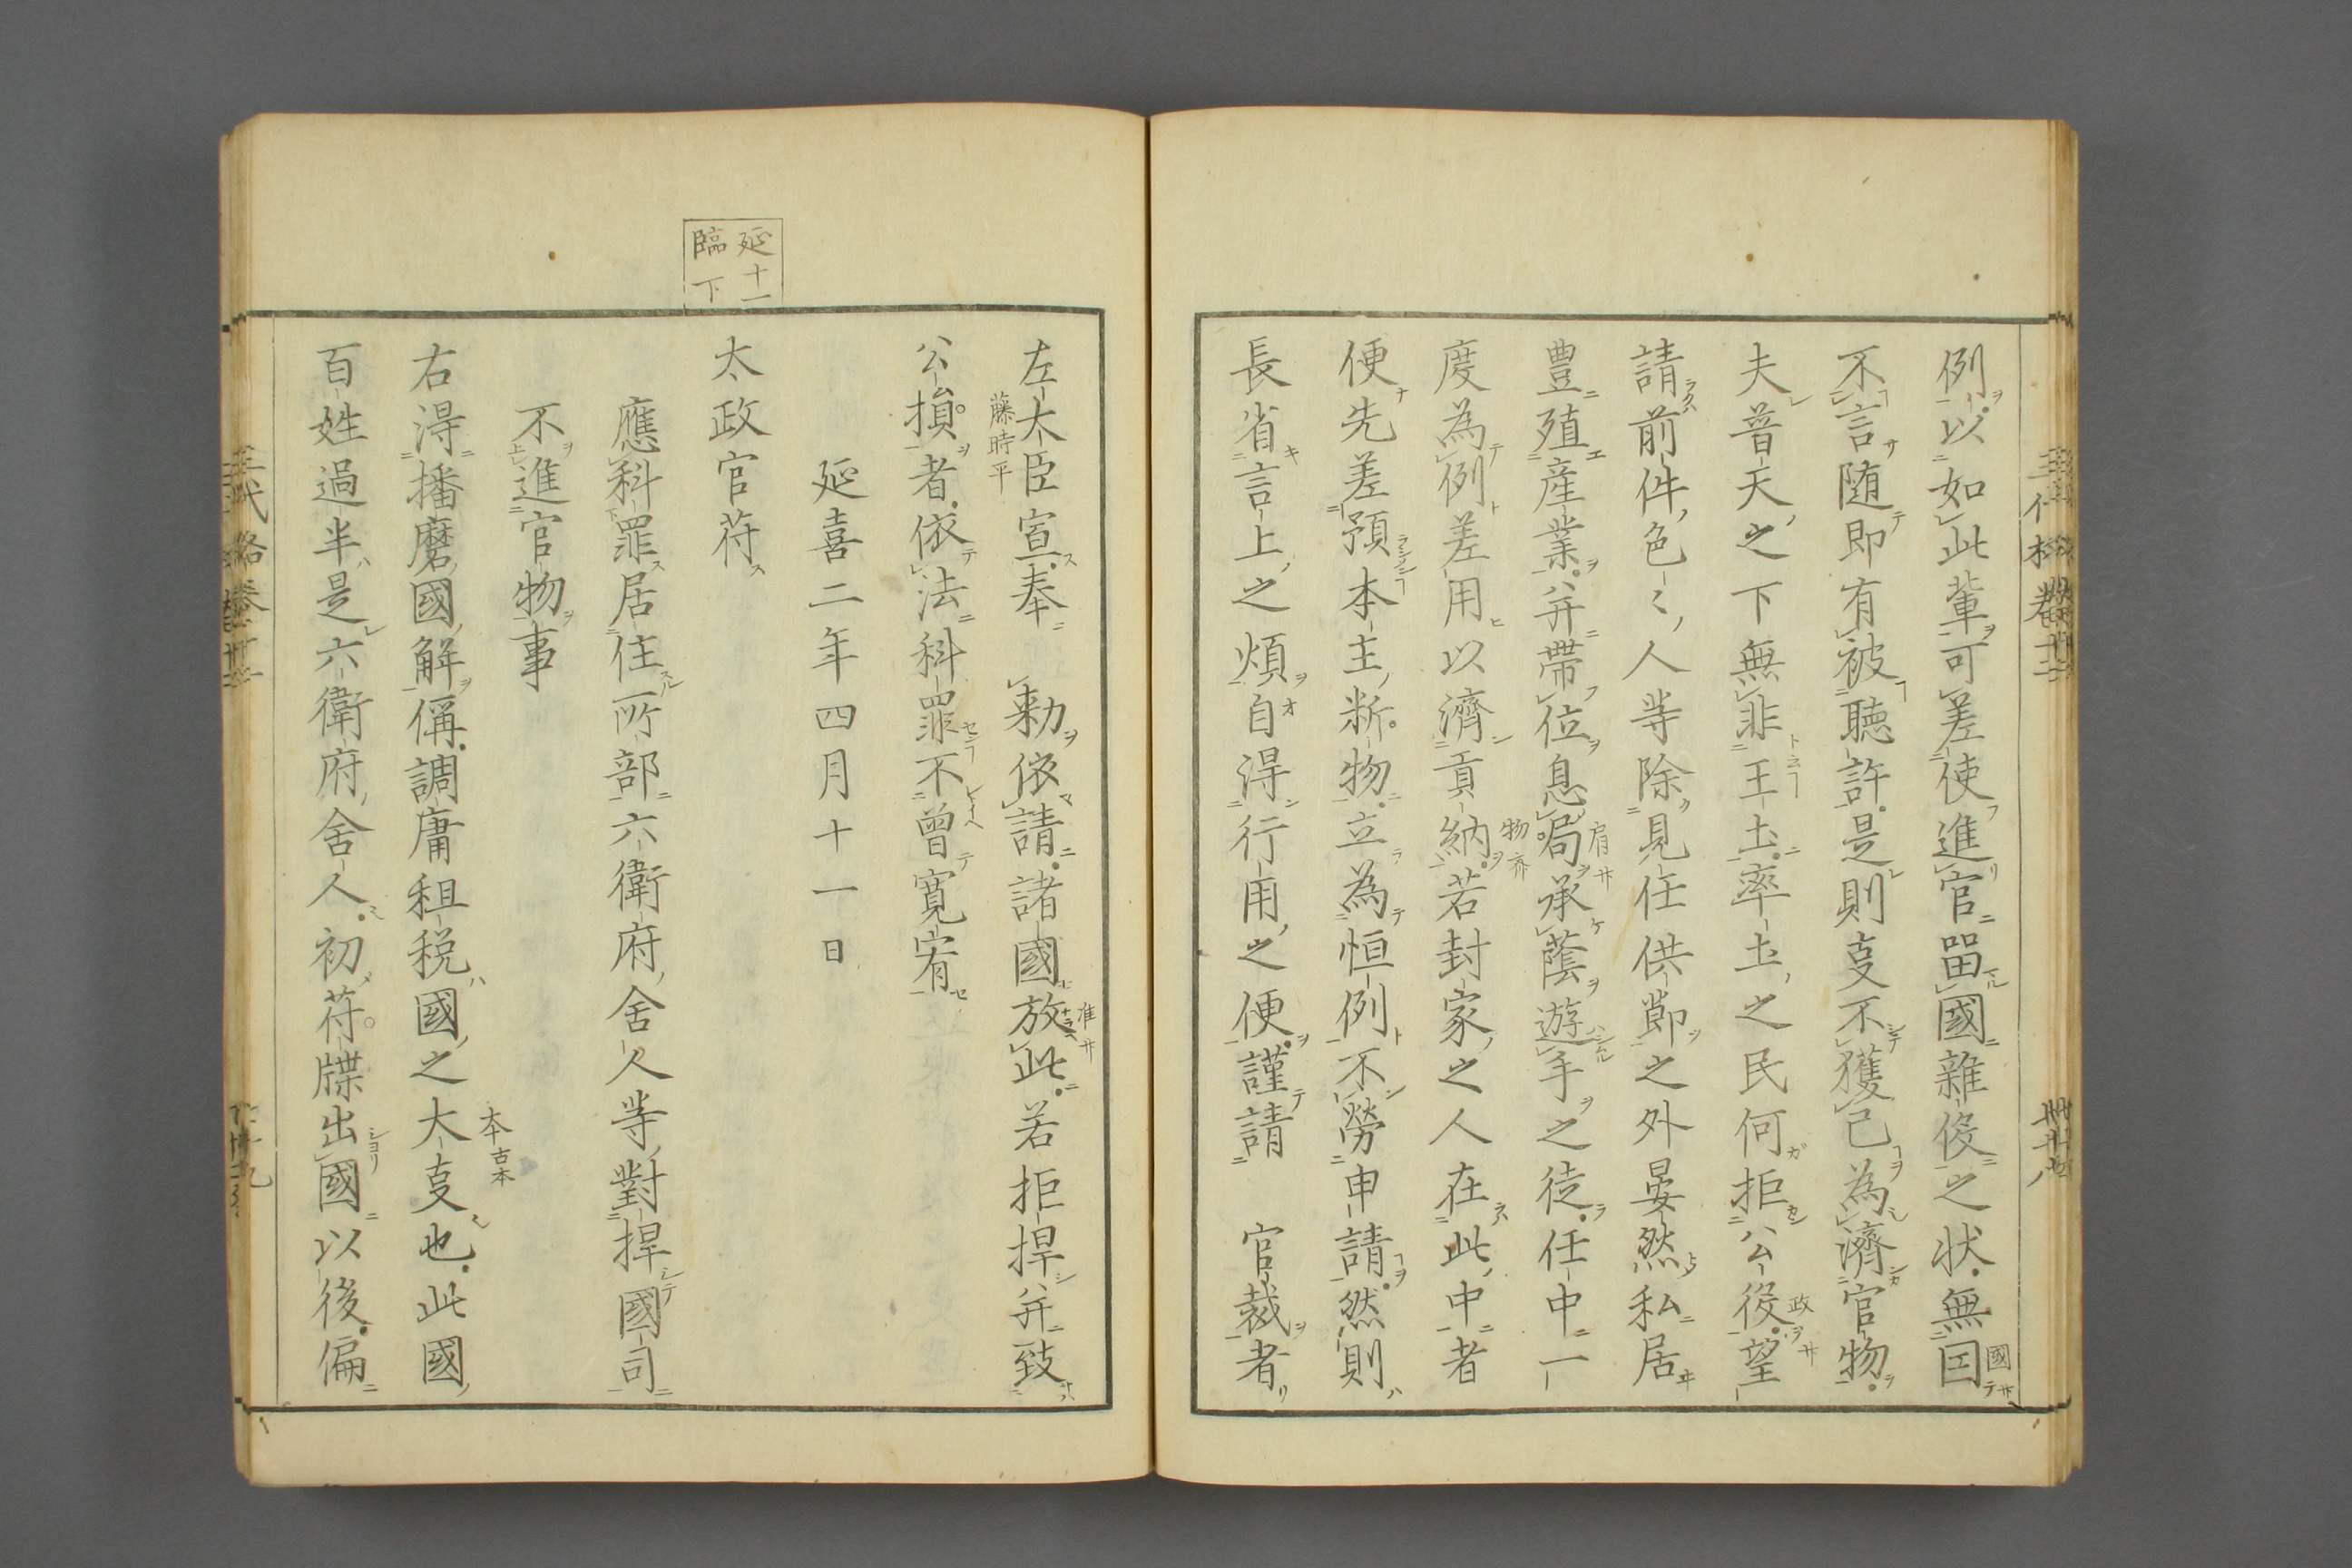 例以如此輩可差使進官留國雑役之状無国
不言随即有被聴許是則叓不獲已為済官物
夫普天之下無非王土率土之民何拒公役望
請前件色〻人等除見任供節之外晏然私居
豊殖産業并帯位息局承蔭遊手之徒任中一
度為例差用以濟貢納若封家之人在此中者
便先差預本主断物立為恒例不勞申請然則
長省言上之煩自得行用之便謹請 官裁者
左大臣宣奉 勅依請諸國放此若拒捍并致
藤時平
公損者依法科罪不曾寛宥
延喜二年四月十一日
延十一
臨下
太政官符
應科罪居住所部六衛府舍人等對捍國司
不進官物事
右得播磨國解偁調庸租税國之大叓也此國
本古本
百姓過半是六衛府舍人初符牒出國以後偏